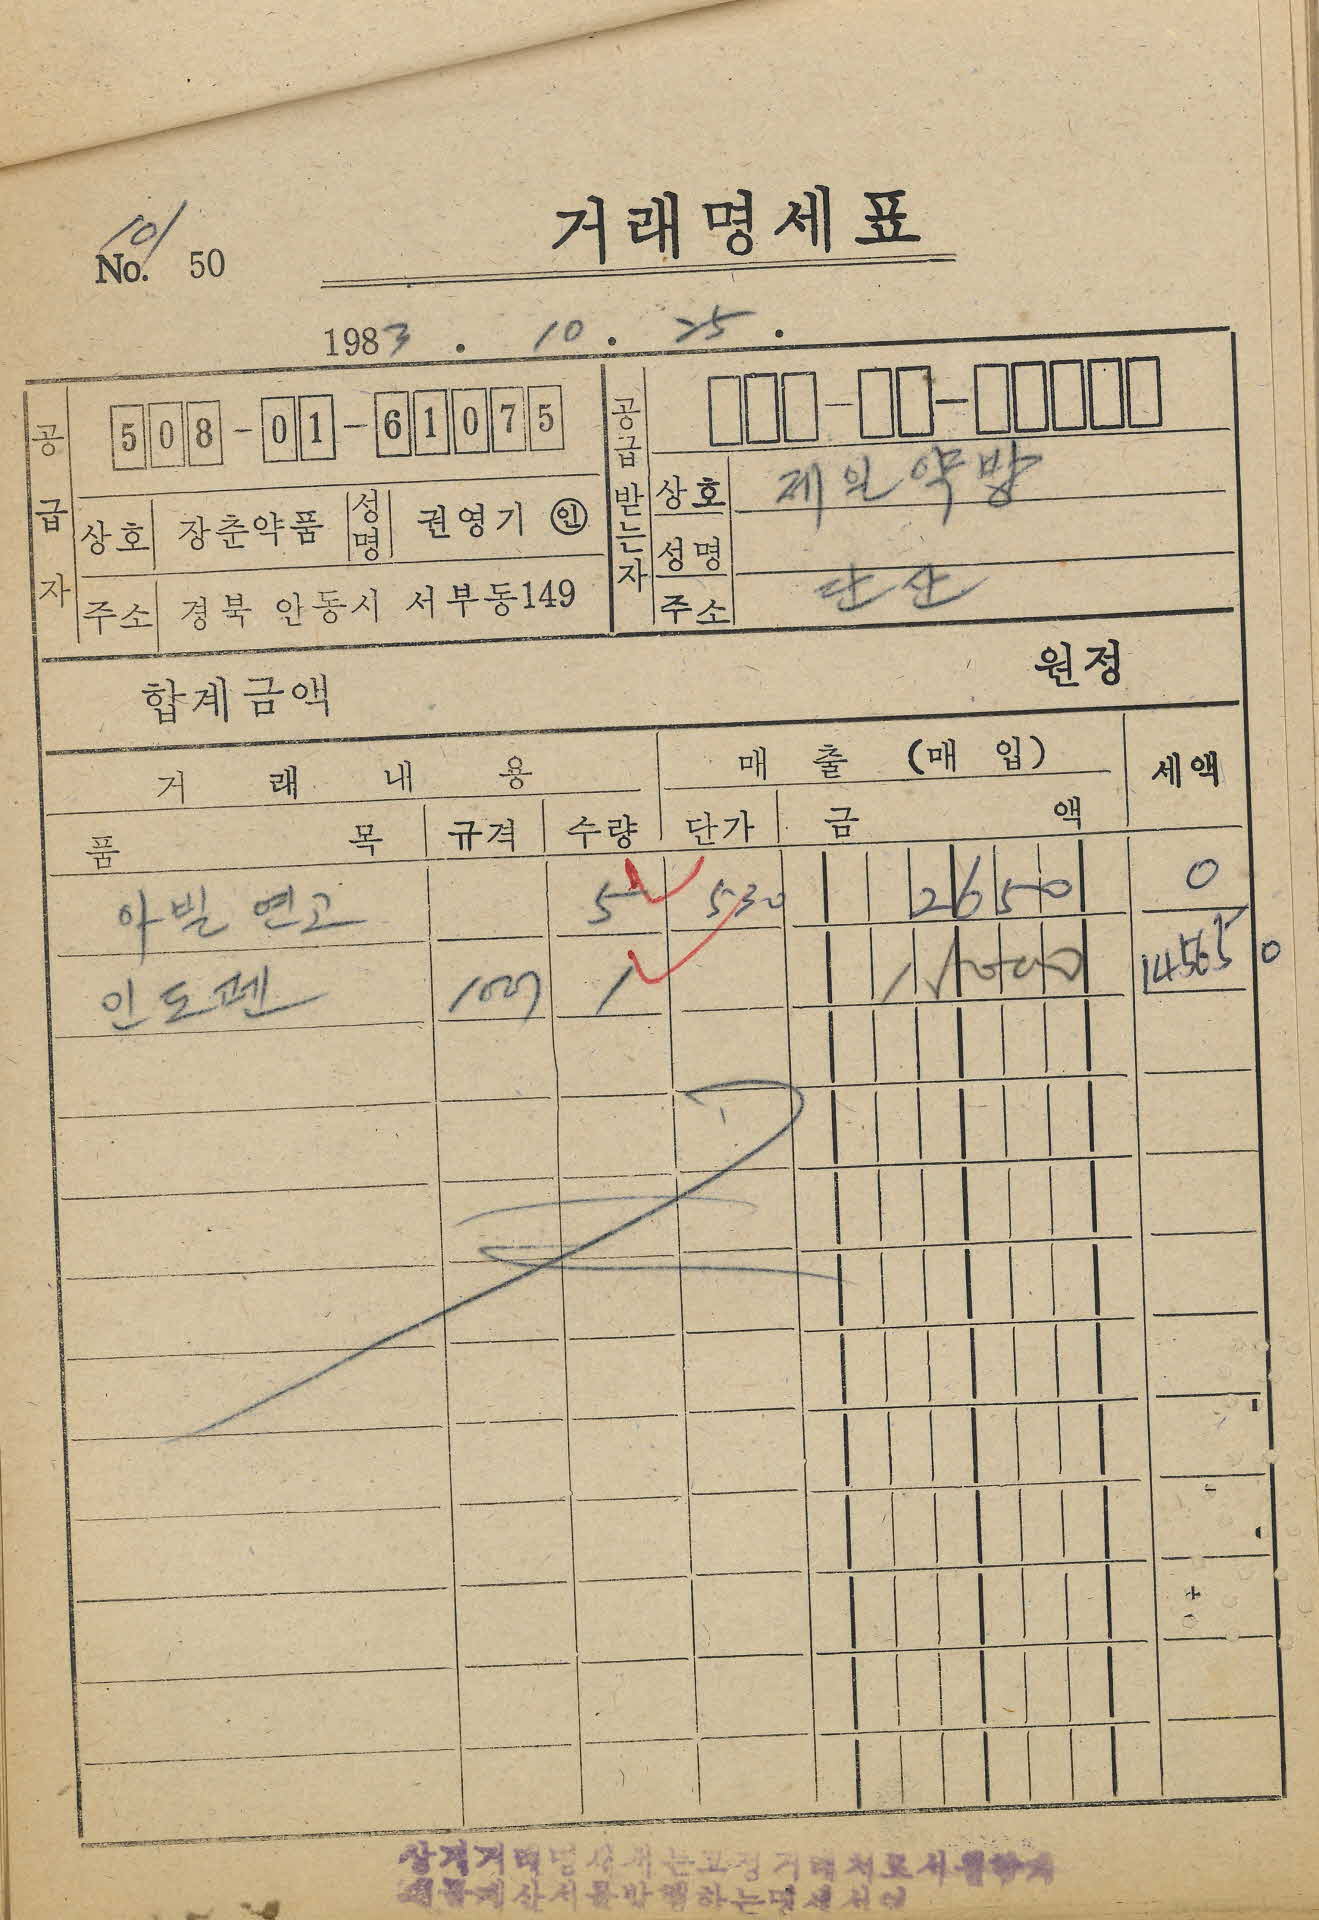 거래명세표
10/
No. 50
1983 . 10 . 25 .
공급자
508-01-61075
상호 장춘약품 성명 권영기 인
주소 경북 안동시 서부동149
공급받는자
상호 제일약방
성명
주소 단산
합계금액 원정
거래내용 매출(매입) 세액
품목 규격 수량 단가 금액
아빌연고 5 530 2650 0
인도펜 1 14565 0